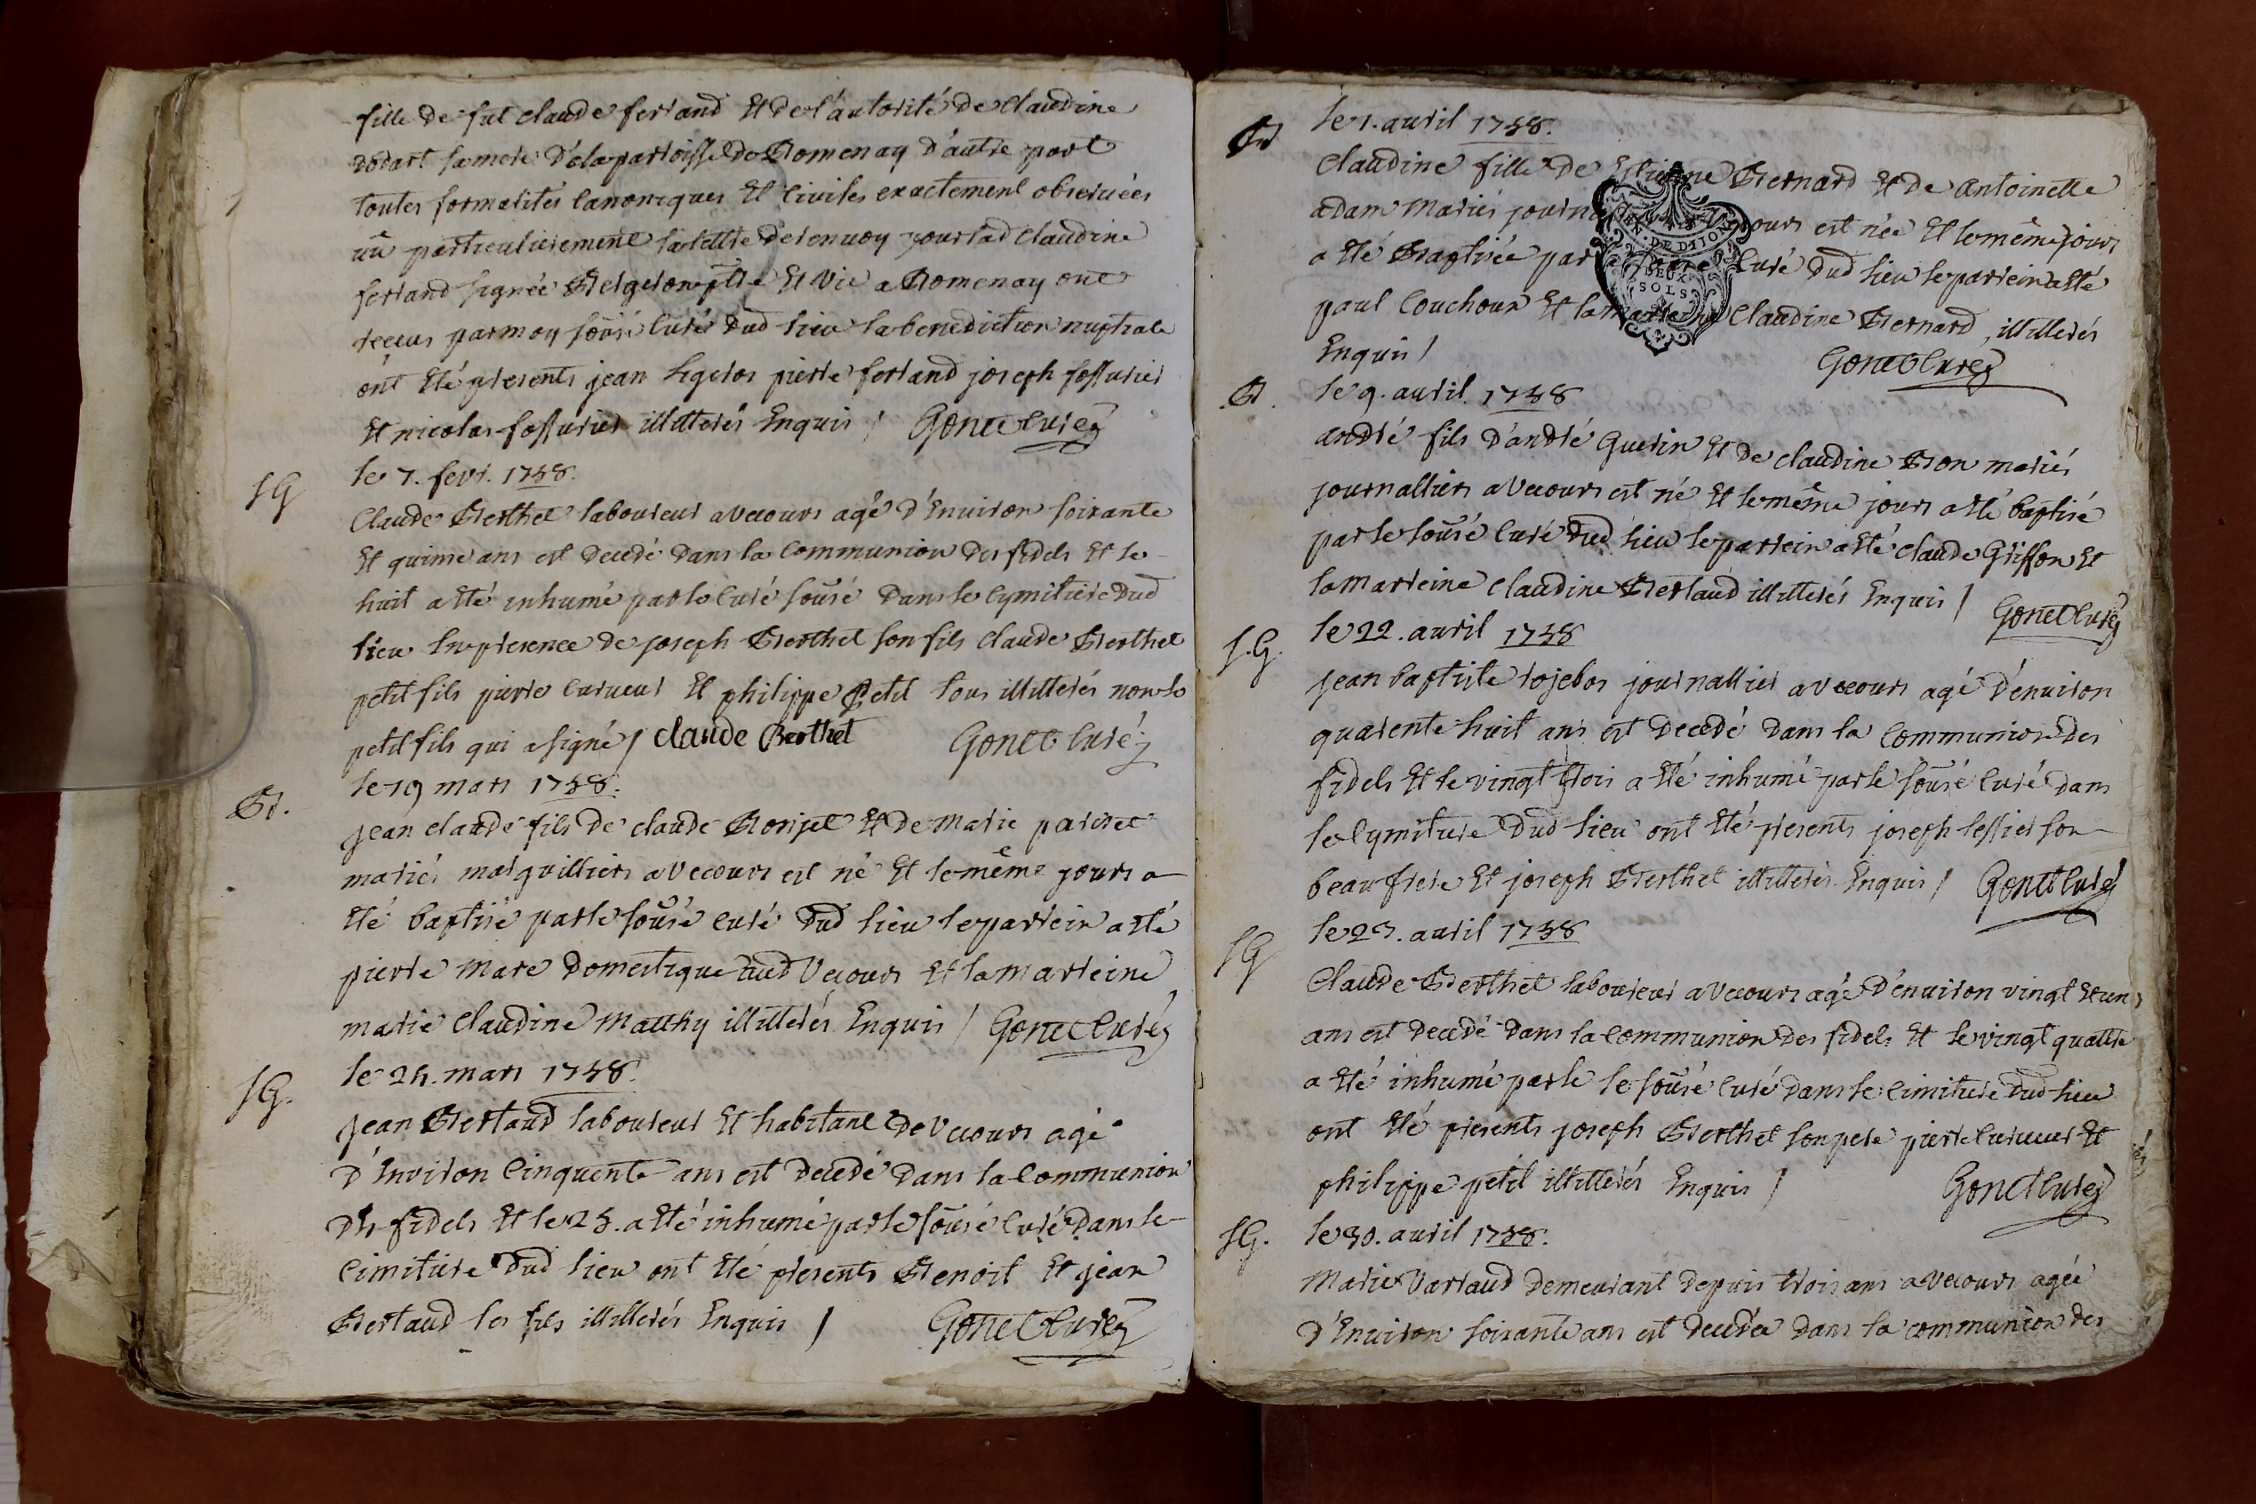 fille de fut claude ferrand Et de l'autorité de Claudine
sa mere de la parroisse de Romenay d'autre part
toutes formalités canoniques Et Civiles exactement observées
vû particulierement la lettre de renvoy pour lad Claudine
ferrand signée Et Vic a Romenay ont
receus par moy sousé Curé dud lieu la benediction nuptiale
ont Eté presents jean pierre ferrand joseph fossurier
Et nicolas fossurier illitterés Enquis / Gonet Curé
le 7. fevr. 1738.
SG
Claude Berthet laboureur a Vecours agé d'Environ soixante
Et quinse ans est decedé dans la Communion des fidels Et le
huit a Eté inhumé par le Curé sousé dans le Cymitiere dud
lieu En presence de joseph Berthet son fils Claude Berthet
petit fils pierre Curveur Et philippe Petit tous illitterés non le
petit fils qui a signé / Claude Berthet Gonet Curé
le 19 mars 1738.
Bt.
jean claude fils de claude Bonjet Et de Marie
mariés marguilliers a Vecours est né Et le même jours a
Eté baptisé par le sousé curé dud lieu le parrein a Eté
pierre Mare domestique aud Vecours Et la Marreine
marie Claudine Matthy illitterés Enquis / Gonet Curé
le 24. mars 1738.
SG.
jean Bertaud laboureur Et habitant de Vecours agé
d'Environ Cinquente ans est decedé dans la Communion
des fidels Et le 25. a Eté inhumé par le sousé Curé dans le
Cimitiere dud lieu ont Eté presents Benoit Et jean
Bertaud ses fils illitterés Enquis / Gonet Curé
Bt
le 1. avril 1738.
Claudine fille de Estienne Bernard Et de Antoinette
adam Mariés est née Et le même jours
a Eté Baptisée par Curé dud lieu le parrein a Eté
paul Couchoux Et la marreine Claudine Bernard, illitterés
Enquis / Gonet Curé
Bt.
le 9. avril 1738
andré fils d'andré Guerin Et de claudine Bon mariés
journalliers a Vecours est né Et le même jours a Eté baptisé
par le sousé Curé dud lieu le parrein a Eté claude Griffon Et
la Marreine Claudine Bertaud illitterés Enquis / Gonet Curé
S.G.
le 22. avril 1738
jean baptiste rojebos journallier a Vecours agé d'environ
quarente huit ans est decedé dans la Communion des
fidels Et le vingt trois a Eté inhumé par le sousé Curé dans
le Cymitiere dud lieu ont Eté presents joseph tessier son
beau frere Et joseph Berthet illitterés Enquis / Gonet Curé
le 23. avril 1738
SG
Claude Berthet laboureur a Vecours agé d'environ vingt Et un
ans est decedé dans la Communion des fidels Et le vingt quattre
a Eté inhumé par le le sousé Curé dans le Cimitiere dud lieu
ont Eté presents joseph Berthet son pere pierre Curveur Et
philippe petit illitterés Enquis / Gonet Curé
SG.
le 30. avril 1738.
Marie Varraud demeurant depuis trois ans a Vecours agée
d'Environ soixante ans est decedée dans la communion des